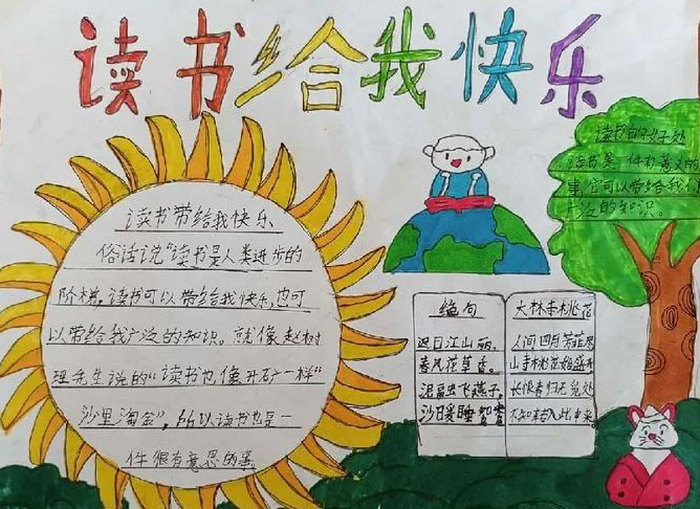 读书给我快乐
读书带给我快乐
俗话说“读书是人类进步的
阶梯,读书可以带给我快乐,也可
以带给我广泛的知识。就像赵树
理先生说的“读书也像开矿一样“
沙里淘金”,所以读书也是一
件很有意思的事。
读书的好处
读书是一件有意义的
事它可以带给我们
广泛的知识。
绝句
迟日江山丽。
春风花草香。
泥融虫飞燕子。
沙日爰睡鸳鸯
大林寺桃花
人间四月芳菲尽
山寺桃花始盛开
长恨春归无觅处
不知转入此中来。